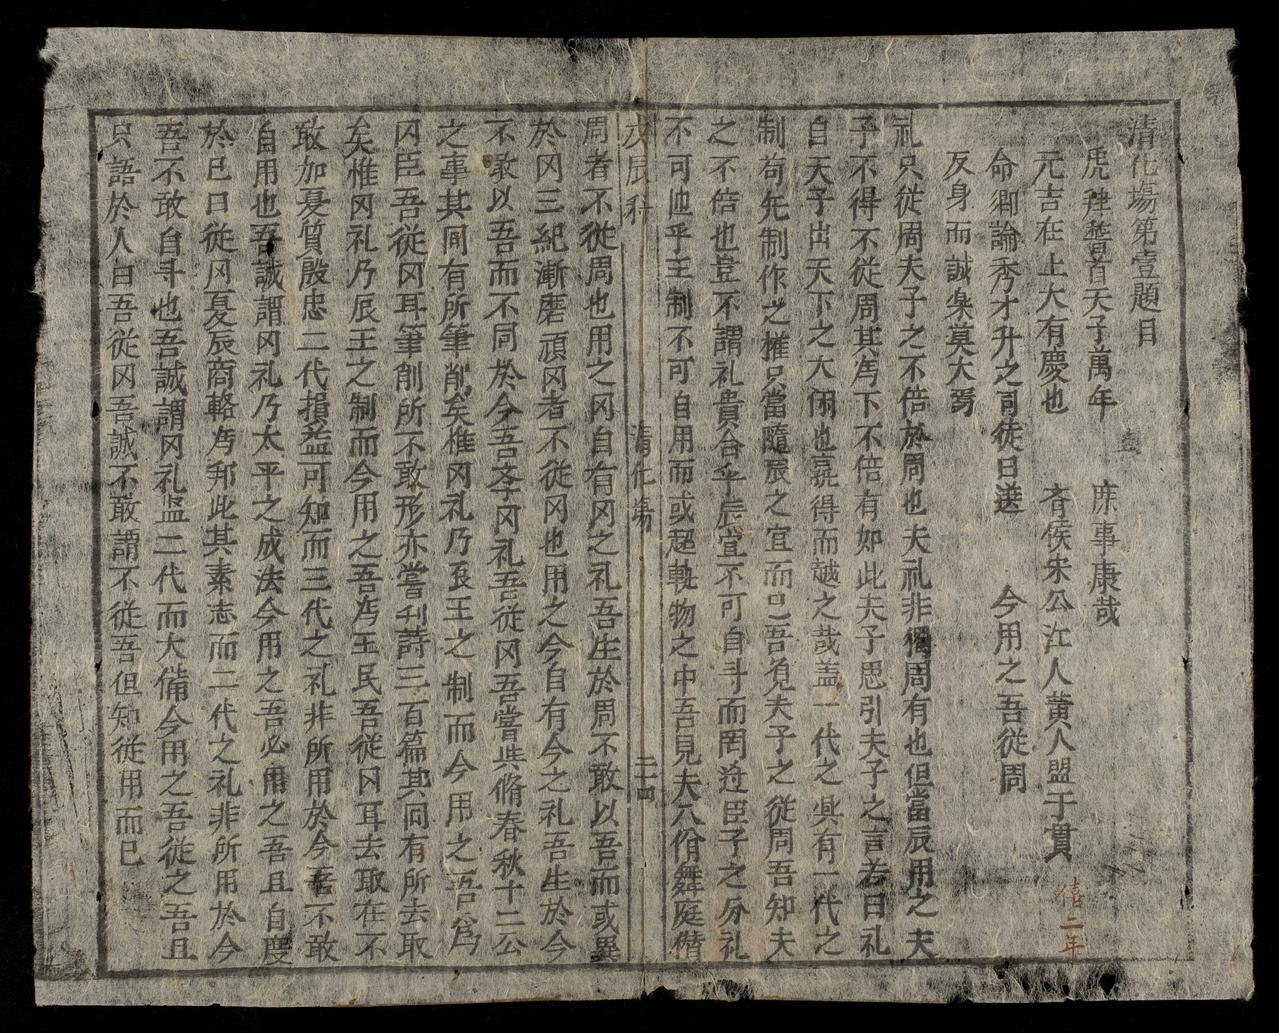 清化場第壹題目
虎拜䭫首天子萬年 庶事康哉
元吉在上大有慶也 齊侯宋公江人黄人盟于貫
僖二年
命鄉論秀才升之司徒曰選 今用之吾從周
反身而誠樂莫大焉
礼只從周夫子之不倍於周也夫礼非獨周有也但當辰用之夫
子不得不從周其為下不倍有如此夫子思引夫子之言若曰礼
自天子出天下之大閑也孰得而越之哉盖一代之興有一代之
制苟先制作之權只當隨辰之宜而已吾見夫子之從周吾知夫
之不倍也豈不謂礼貴合乎辰宜不可自斗而罔迨臣子之分礼
不可他乎王制不可自用而或超軌物之中吾見夫八佾舞庭僭
戊辰科 清化場 二十四
周者不從周也用之冈自有冈之礼吾生於周不敢以吾而或異
於冈三紀漸磨頑冈者不從冈也用之今自有今之礼吾生於今
不敢以吾而不同於今吾斈冈礼吾從冈吾嘗㪽脩春秋十二公
之事其间有所筆削矣惟冈礼乃辰王之制而今用之吾爲
冈臣吾從冈耳筆削所不敢形亦嘗刊詩三百篇其间有所去取
矣惟冈礼乃辰王之制而今用之吾為王民吾從冈耳去取在不
敢加夏質殷忠二代損益可知而三代之礼非所用於今者不敢
自用也吾誠謂冈礼乃太平之成法今用之吾必用之吾且自慶
於已曰從冈夏辰商輅為邦此其素志而二代之礼非所用於今
吾不敢自斗也吾誠謂冈礼监二代而大備今用之吾從之吾且
只語於人曰吾從冈吾誠不敢謂不從吾但知從用而已